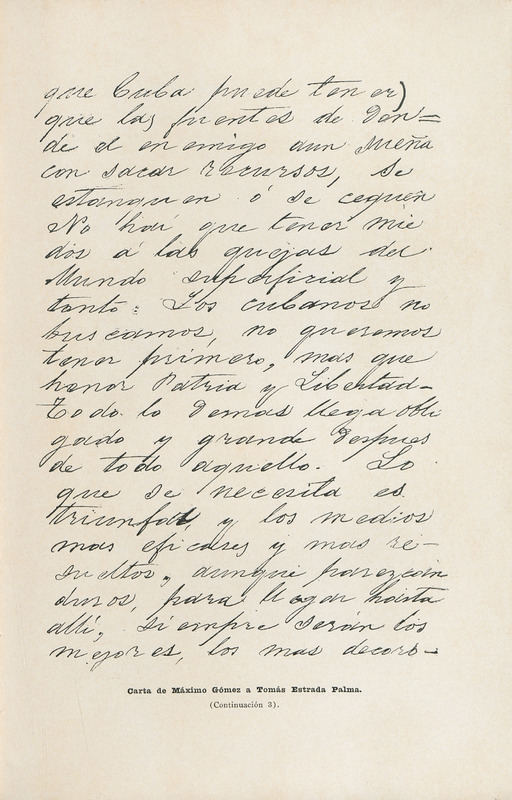 que Cuba puede tener)
que las fuentes de Don=
de el enemigo aun sueña
con sacar recursos, se
estanquen ó se ceguen
No hai que tener mie
dos á las quejas del
Mundo superficial y
tonto: Los cubanos no
buscamos, no queremos
tener primero, mas que
honor Patria y Libertad-
Todo lo demas llega obli
gado y grande despues
de todo aquello. Lo
que se necesita es
triunfar, y los medios
mas eficases y mas re-
sueltos, aunque parezcan
duros, para llegar hasta
allí, siempre serán los
mejores, los mas decoro-
Carta de Máximo Gómez a Tomás Estrada Palma.
(Continuación 3).